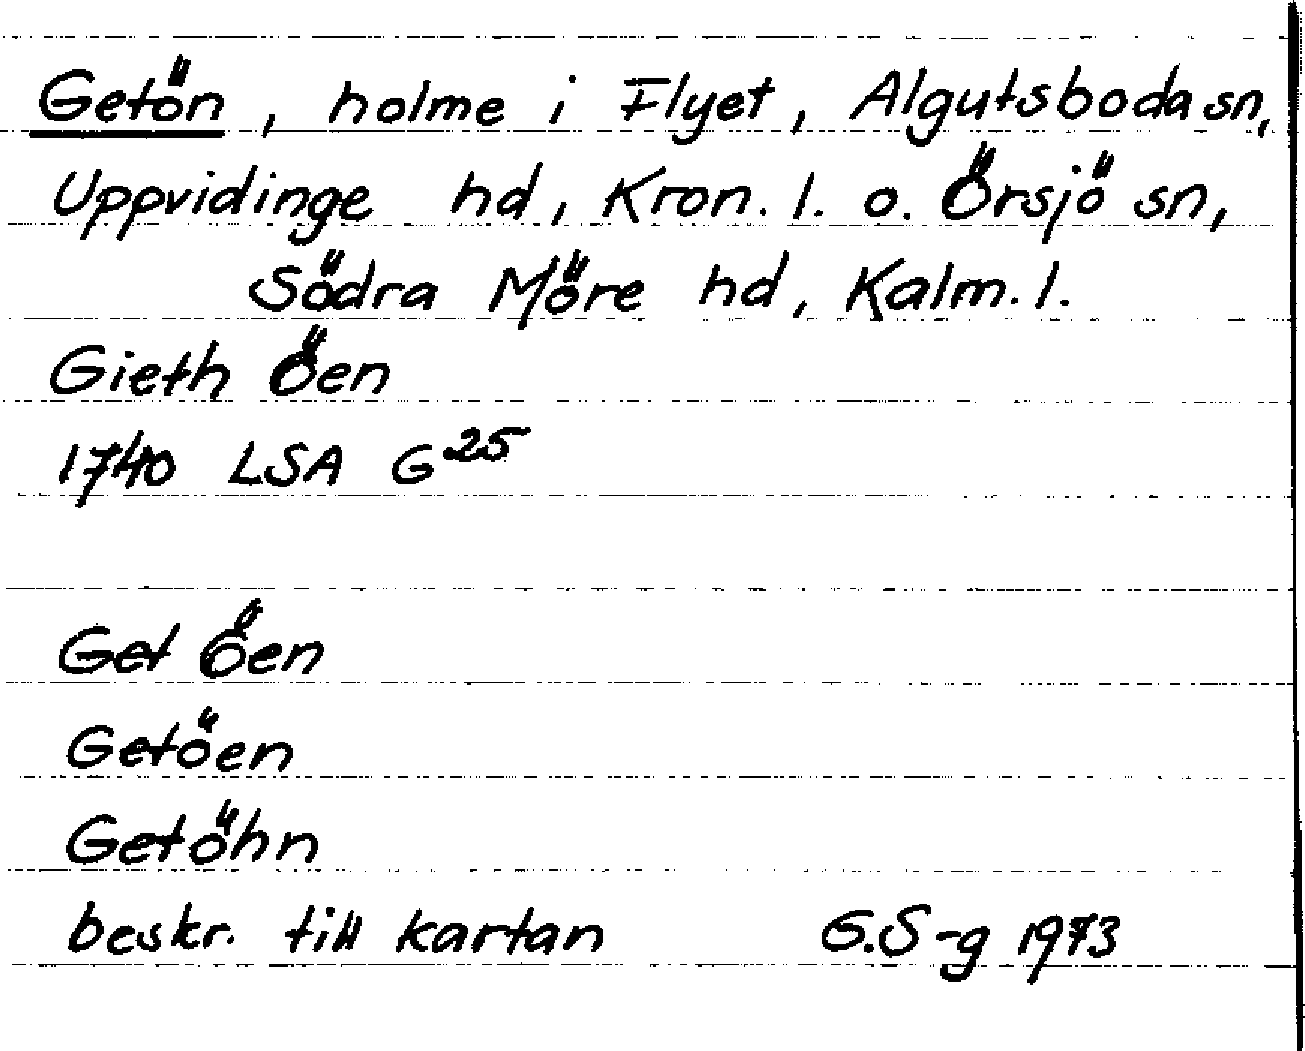 Getön, holme i Flyet, Algutsboda sn,
Uppvidinge hd, Kron. l. o. Örsjö sn,
Södra Möre hd, Kalm. l.
Gieth Öen
1740 LSA G 25
Get Öen
Getöen
Getöhn
beskr. till kartan G.S-g 1973